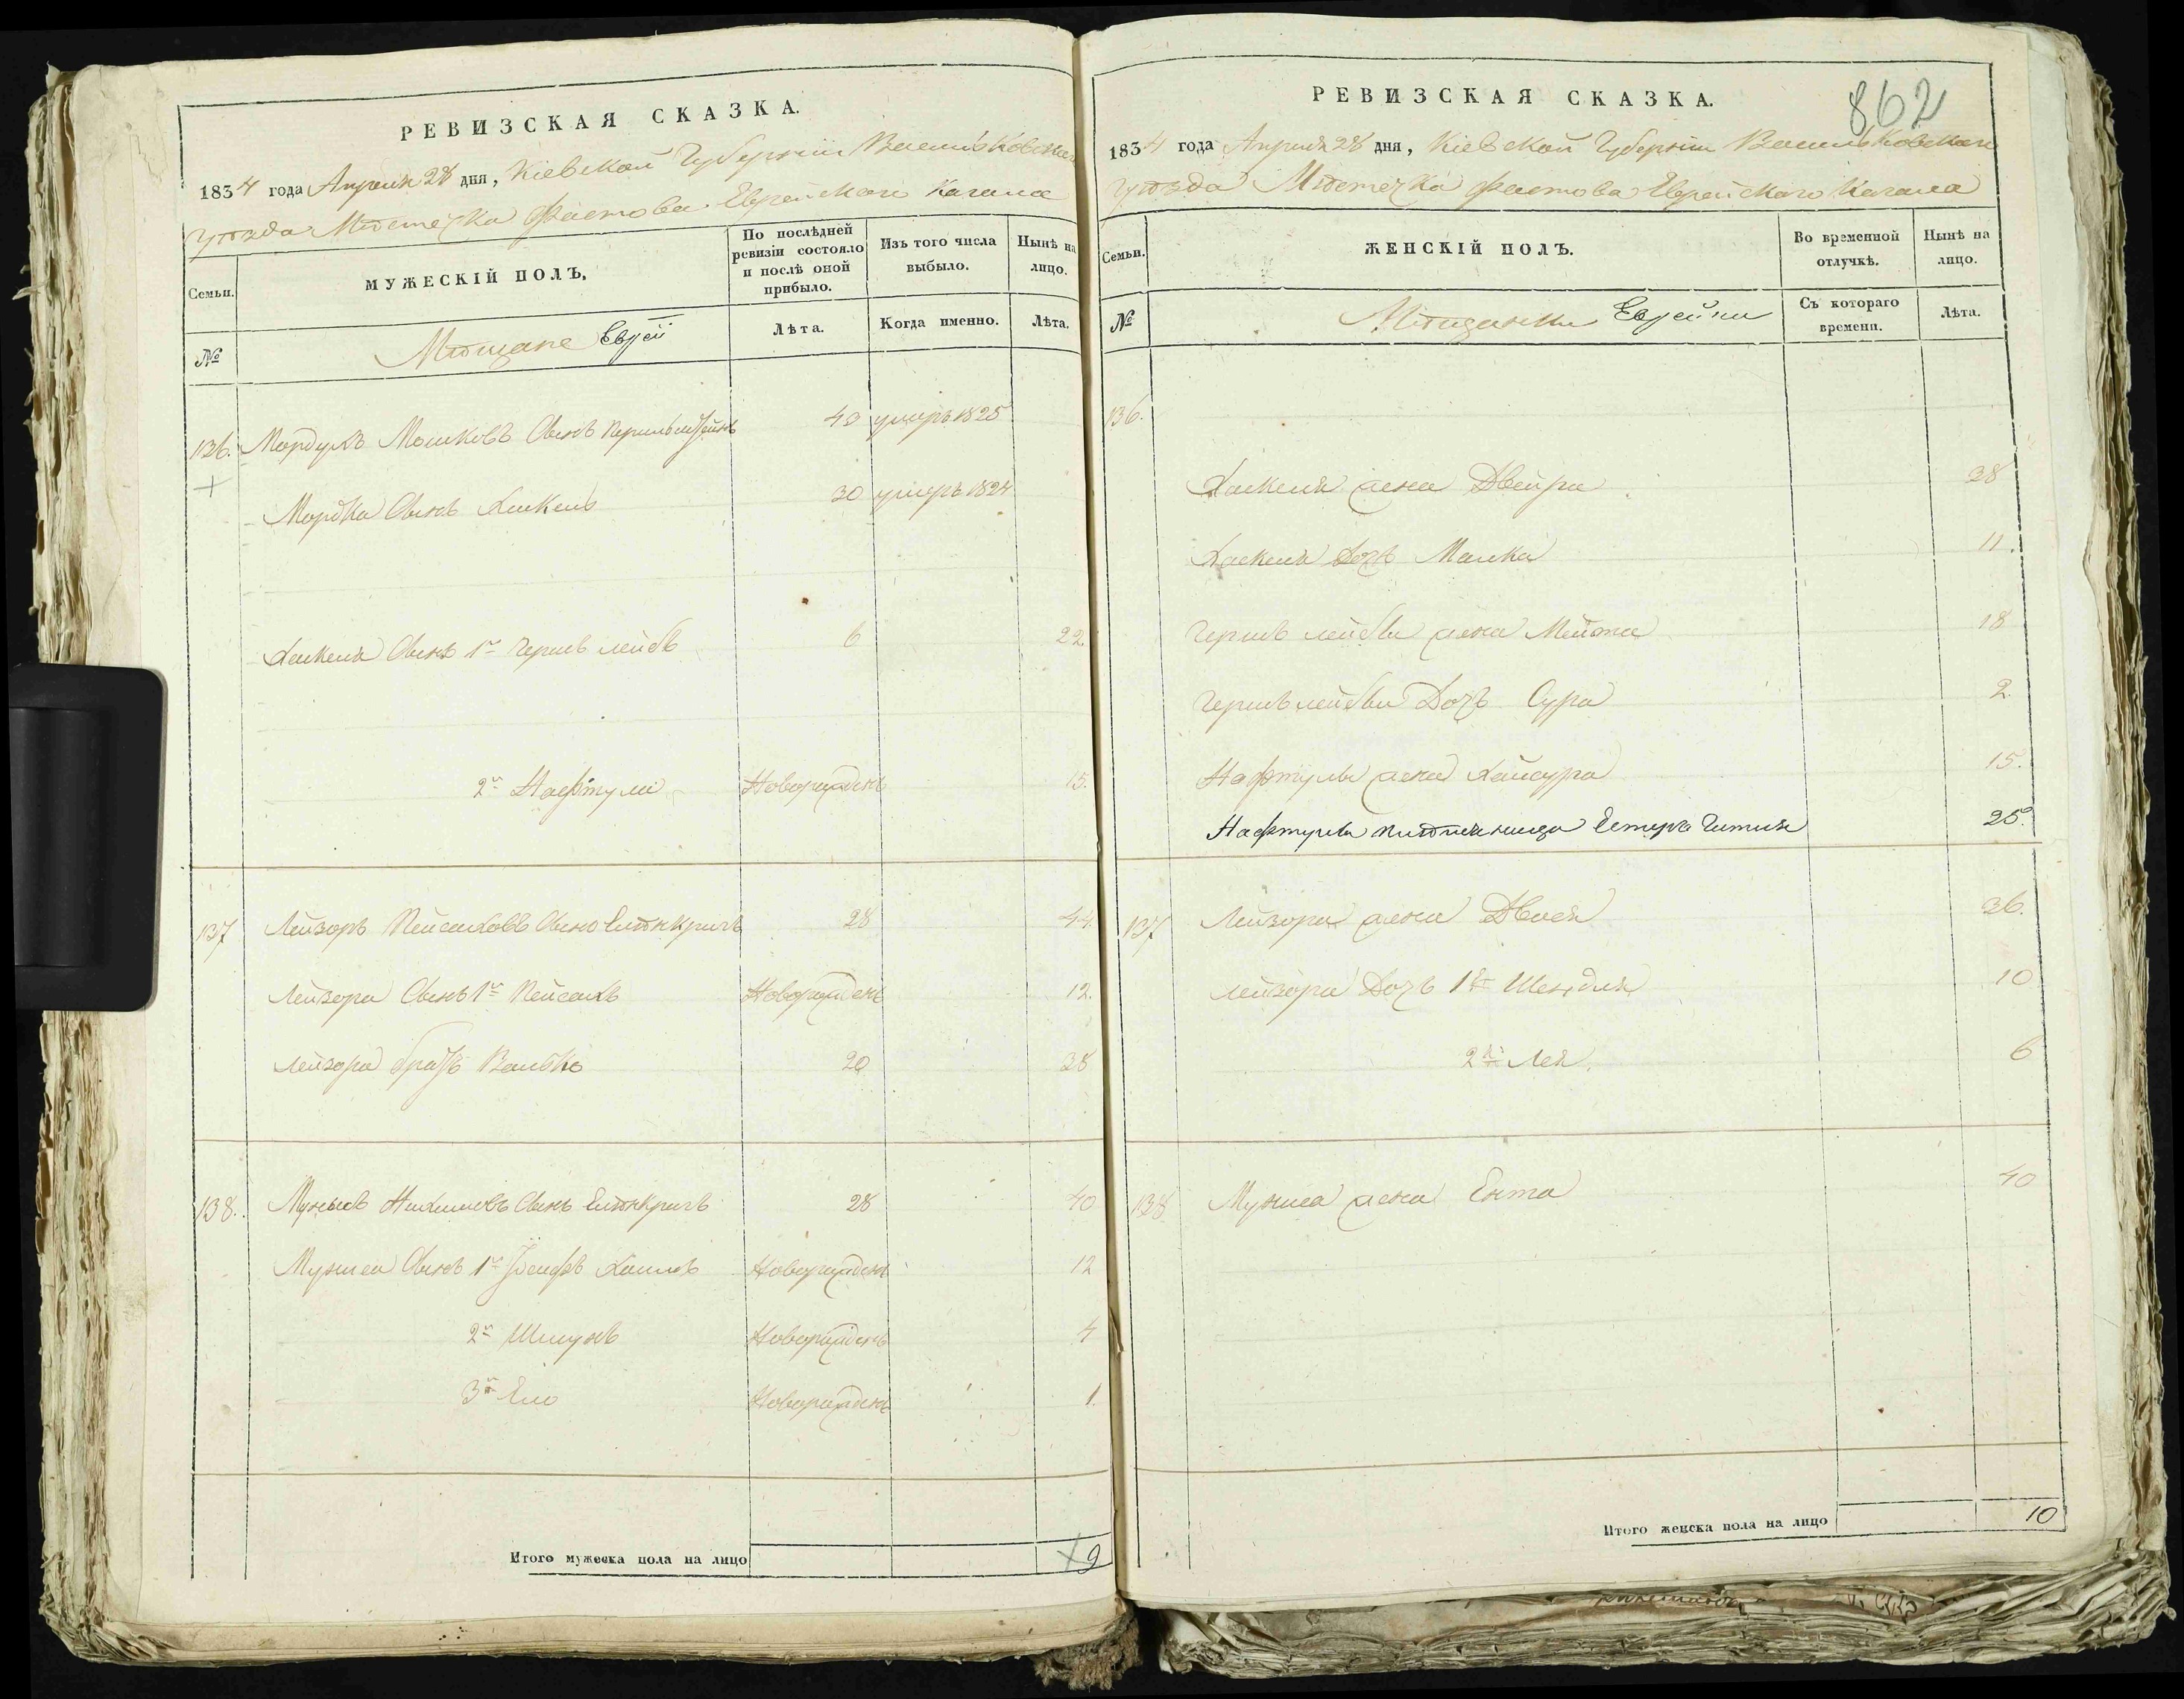 РЕВИЗСКАЯ СКАЗКА.
1834 года Апреля 28 дня, Кіевской Губерніи Васильковскаго
уѣзда Мѣстечка Фастова Еврейскаго Кагала
Семьи.
МУЖЕСКІЙ ПОЛЪ.
По послѣдней ревизіи состояло и послѣ оной прибыло.
Изъ того числа выбыло.
Нынѣ на лицо.
№
Мѣщане Евреи
Лѣта.
Когда именно.
Лѣта.
126. Мордухъ Мошковъ Сынъ 40 умеръ 1825
+
Мордка Сынъ Хаскель 30 умеръ 1824
Хаскеля Сынъ 1й Гершъ лейбъ 6 22
2й Нафтула Новорожденъ 15.
137 Лейзоръ Пейсаховъ Сынъ 28 44
Лейзора Сынъ 1й Пейсахъ Новорожденъ 12.
Лейзора братъ Волько 20 38
138. Мунысъ Сынъ 28 40
Муниса Сынъ 1й Хаимъ Новорожденъ 12
2й Шмунъ Новорожденъ 4
3й Новорожденъ 1.
Итого мужеска пола на лицо 9
862
РЕВИЗСКАЯ СКАЗКА.
1834 года Апреля 28 дня, Кіевской Губерніи Васильковскаго
уѣзда Мѣстечка Фастова Еврейскаго Кагала
Семьи.
ЖЕНСКІЙ ПОЛЪ.
Во временной отлучкѣ.
Нынѣ на лицо.
№
Мѣщанки Еврейки
Съ котораго времени.
Лѣта.
136.
Хаскеля жена Двейра 38
Хаскеля Дочь Малка 11.
Гершъ лейбы жена 18
Гершъ лейбы Дочь Сура 2.
Нафтулы жена Хайсура 15.
Нафтулы племянница Естеръ Гитля 25.
137 Лейзора жена Двося 36.
Лейзора Дочь 1я Шендля 10
2я Лея. 6
138 Муниса жена Ента 40
Итого женска пола на лицо 10